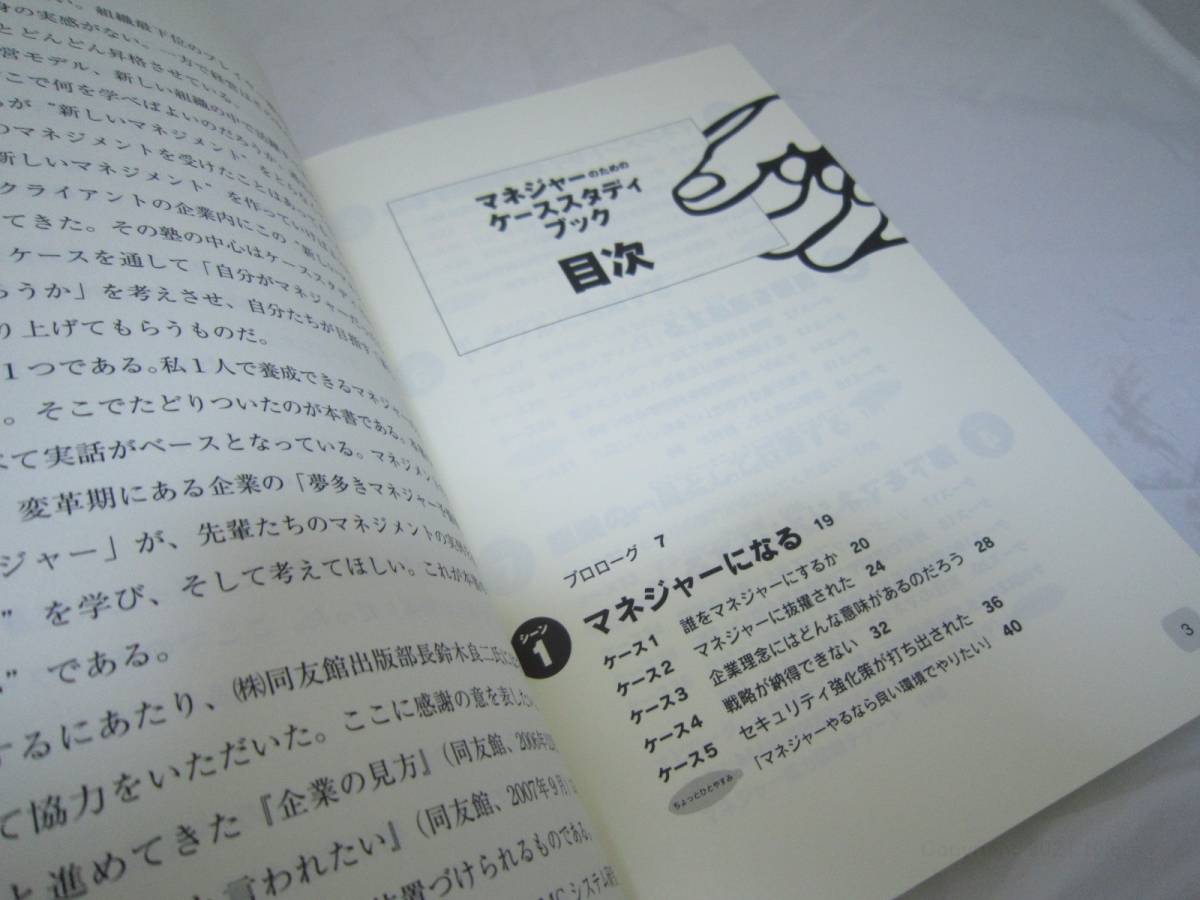 い。組織最下位のプレイ
身の実感がない。一方で経営は
とどんどん昇格させている。
営モデル、新しい組織の中で
こで何を学べばよいのだろうか
らが“新しいマネジメント”を
のマネジメントを受けたことは
新しいマネジメント”を作っていけば
クライアントの企業内にこの“新しい
てきた。その塾の中心はケーススタディ
ケースを通して「自分がマネジャーだ
ろうか」を考えさせ、自分たちが目指す
り上げてもらうものだ。
1つである。私1人で養成できるマネジャー
。そこでたどりついたのが本書である。
べて実話がベースとなっている。マネジメント
変革期にある企業の「夢多きマネジャー
ジャー」が、先輩たちのマネジメントの実
”を学び、そして考えてほしい。これが本
”である。
するにあたり、㈱同友館出版部長鈴木良二氏に
て協力をいただいた。ここに感謝の意を表したい
進めてきた『企業の見方』(同友館、2006年
言われたい』(同友館、2007年9月)
置づけられるものである。
システム
マネジャーのための
ケーススタディ
ブック
目次
プロローグ 7
シーン1 マネジャーになる 19
ケース1 誰をマネジャーにするか 20
ケース2 マネジャーに抜擢された 24
ケース3 企業理念にはどんな意味があるのだろう 28
ケース4 戦略が納得できない 32
ケース5 セキュリティ強化策が打ち出された 36
ちょっとひとやすみ 「マネジャーやるなら良い環境でやりたい」 40
3